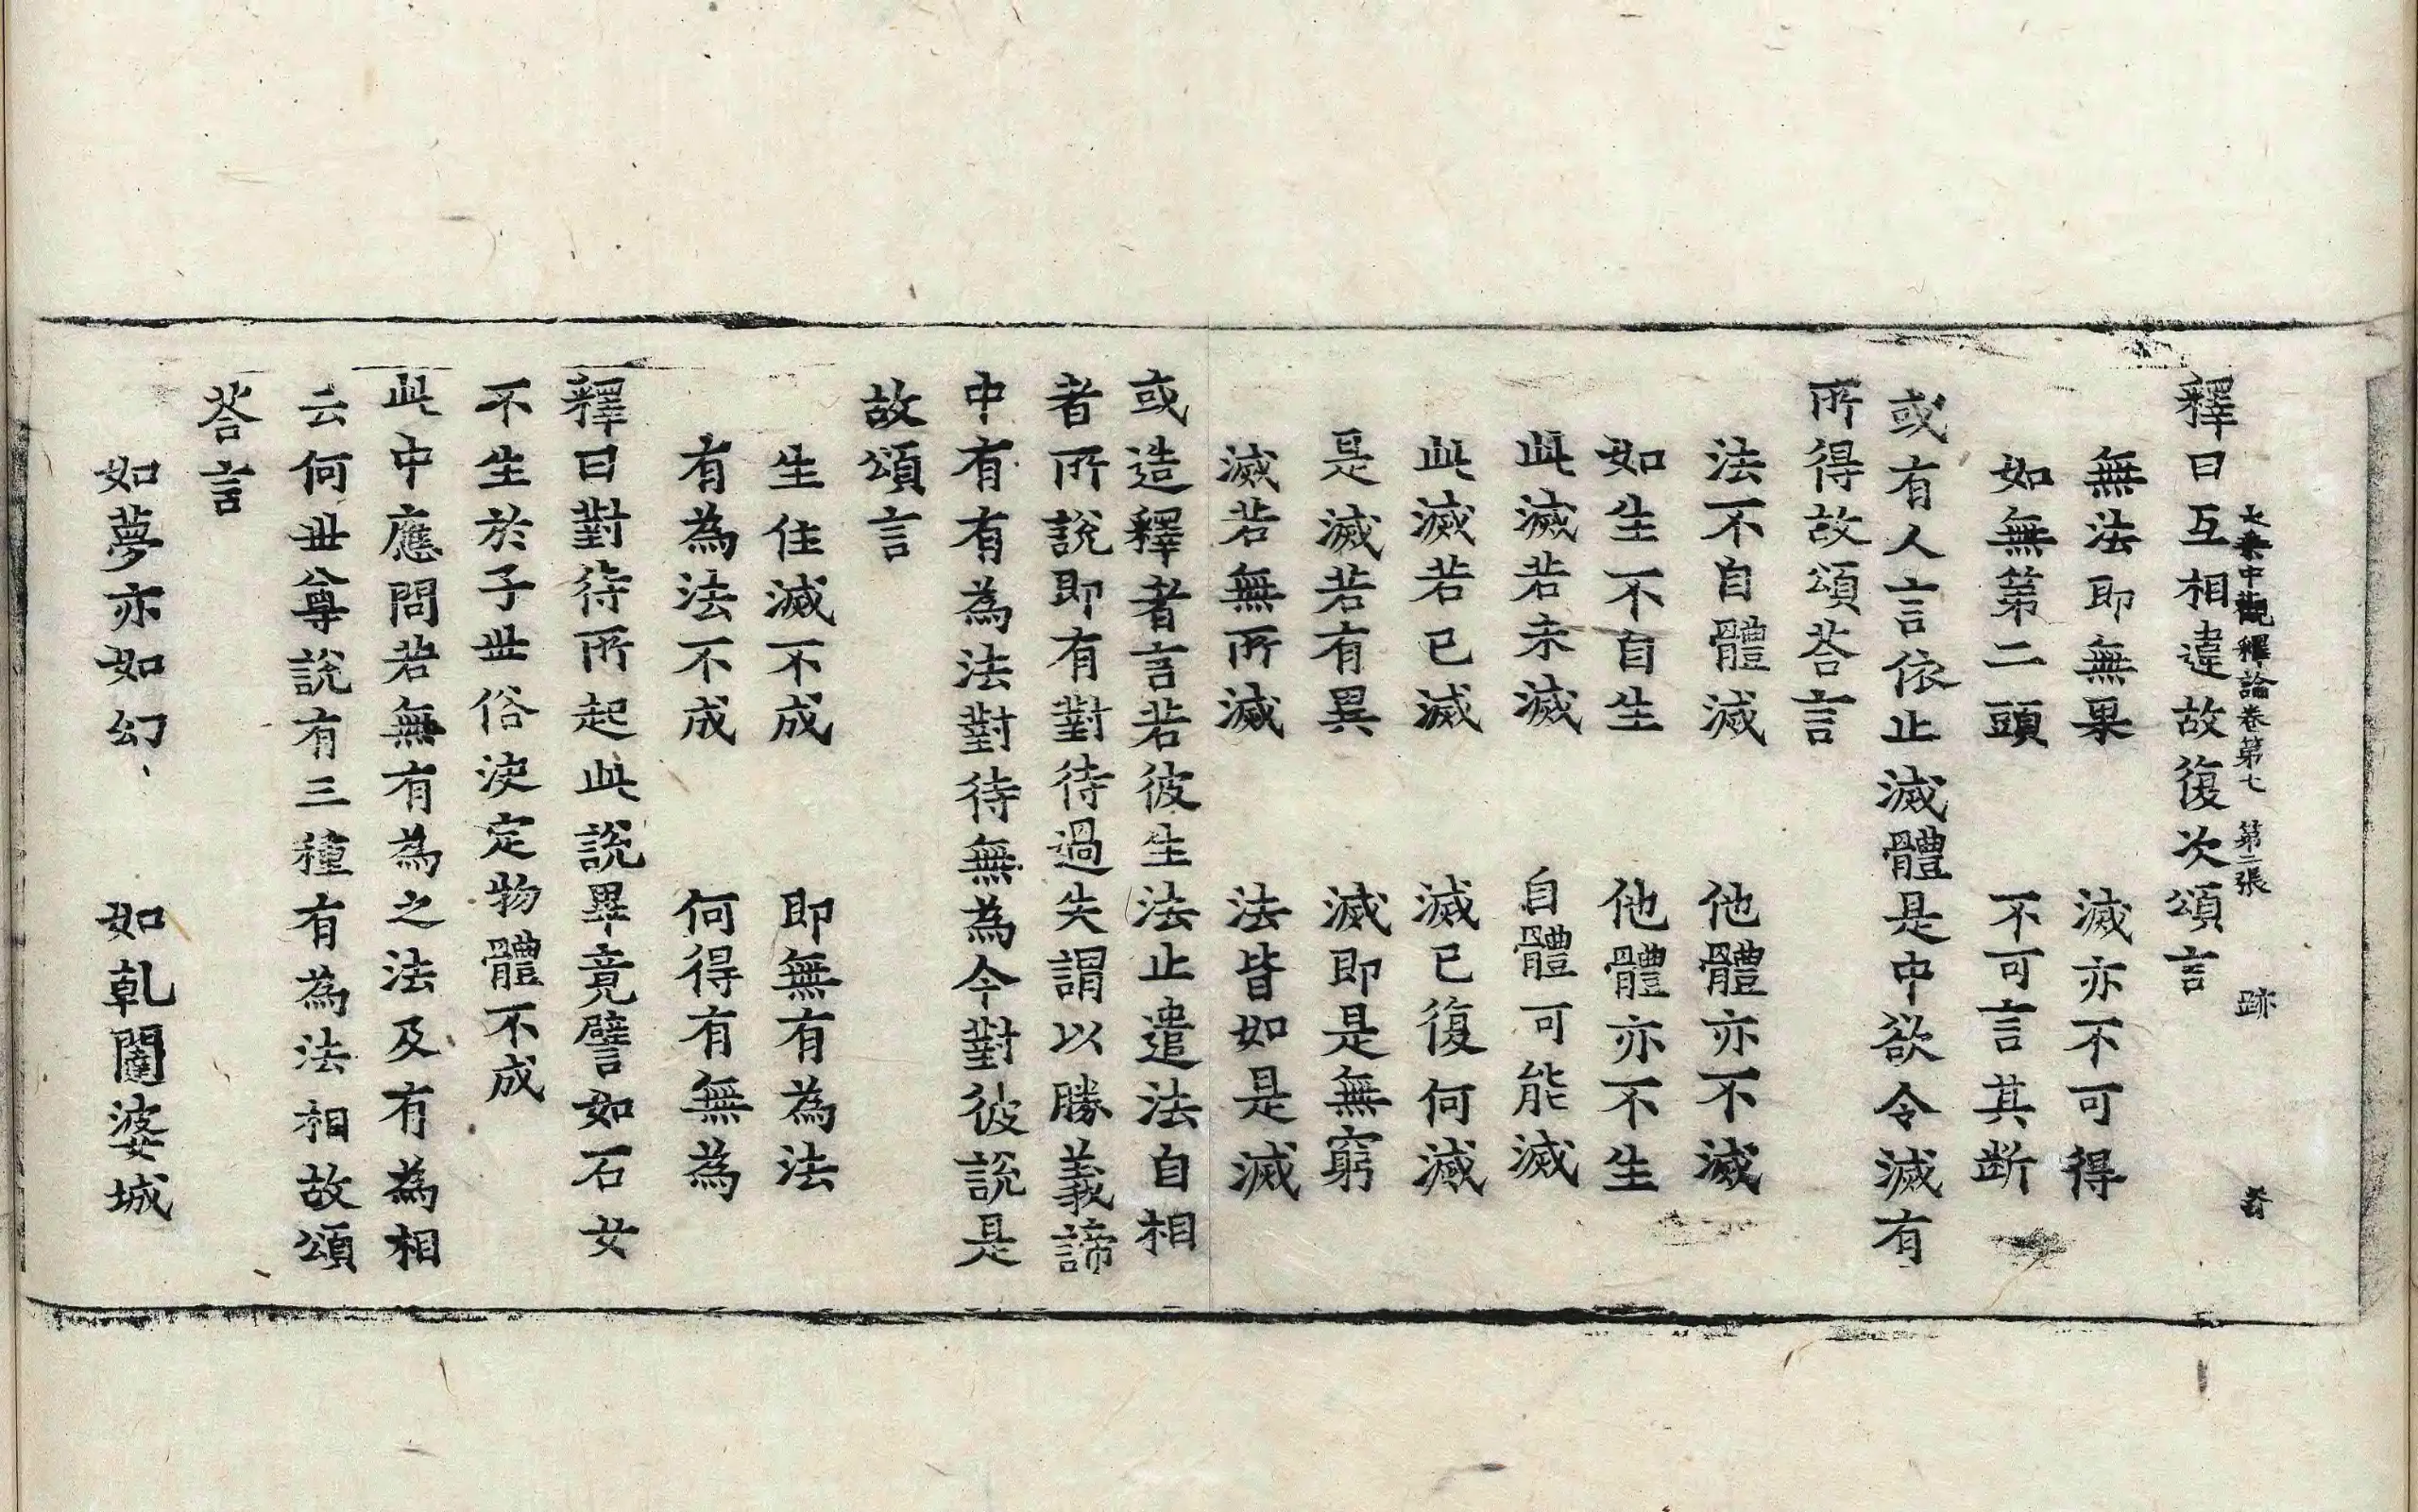 大乘中觀釋論卷第七 第二張 跡
釋曰互相違故復次頌言
無法即無果 滅亦不可得
如無第二頭 不可言其断
或有人言依止滅體是中欲令滅有
所得故頌荅言
法不自體滅 他體亦不滅
如生不自生 他體亦不生
此滅若未滅 自體可能滅
此滅若已滅 滅已復何滅
是滅若有異 滅即是無窮
滅若無所滅 法皆如是滅
或造釋者言若彼生法止遣法自相
者所說即有對待過失謂以勝義諦
中有有為法對待無為今對彼說是
故頌言
生住滅不成 即無有為法
有為法不成 何得有無為
釋曰對待所起此說畢竟譬如石女
不生於子世俗決定物體不成
此中應問若無有為之法及有為相
云何世尊說有三種有為法相故頌
荅言
如夢亦如幻 如乹闥婆城